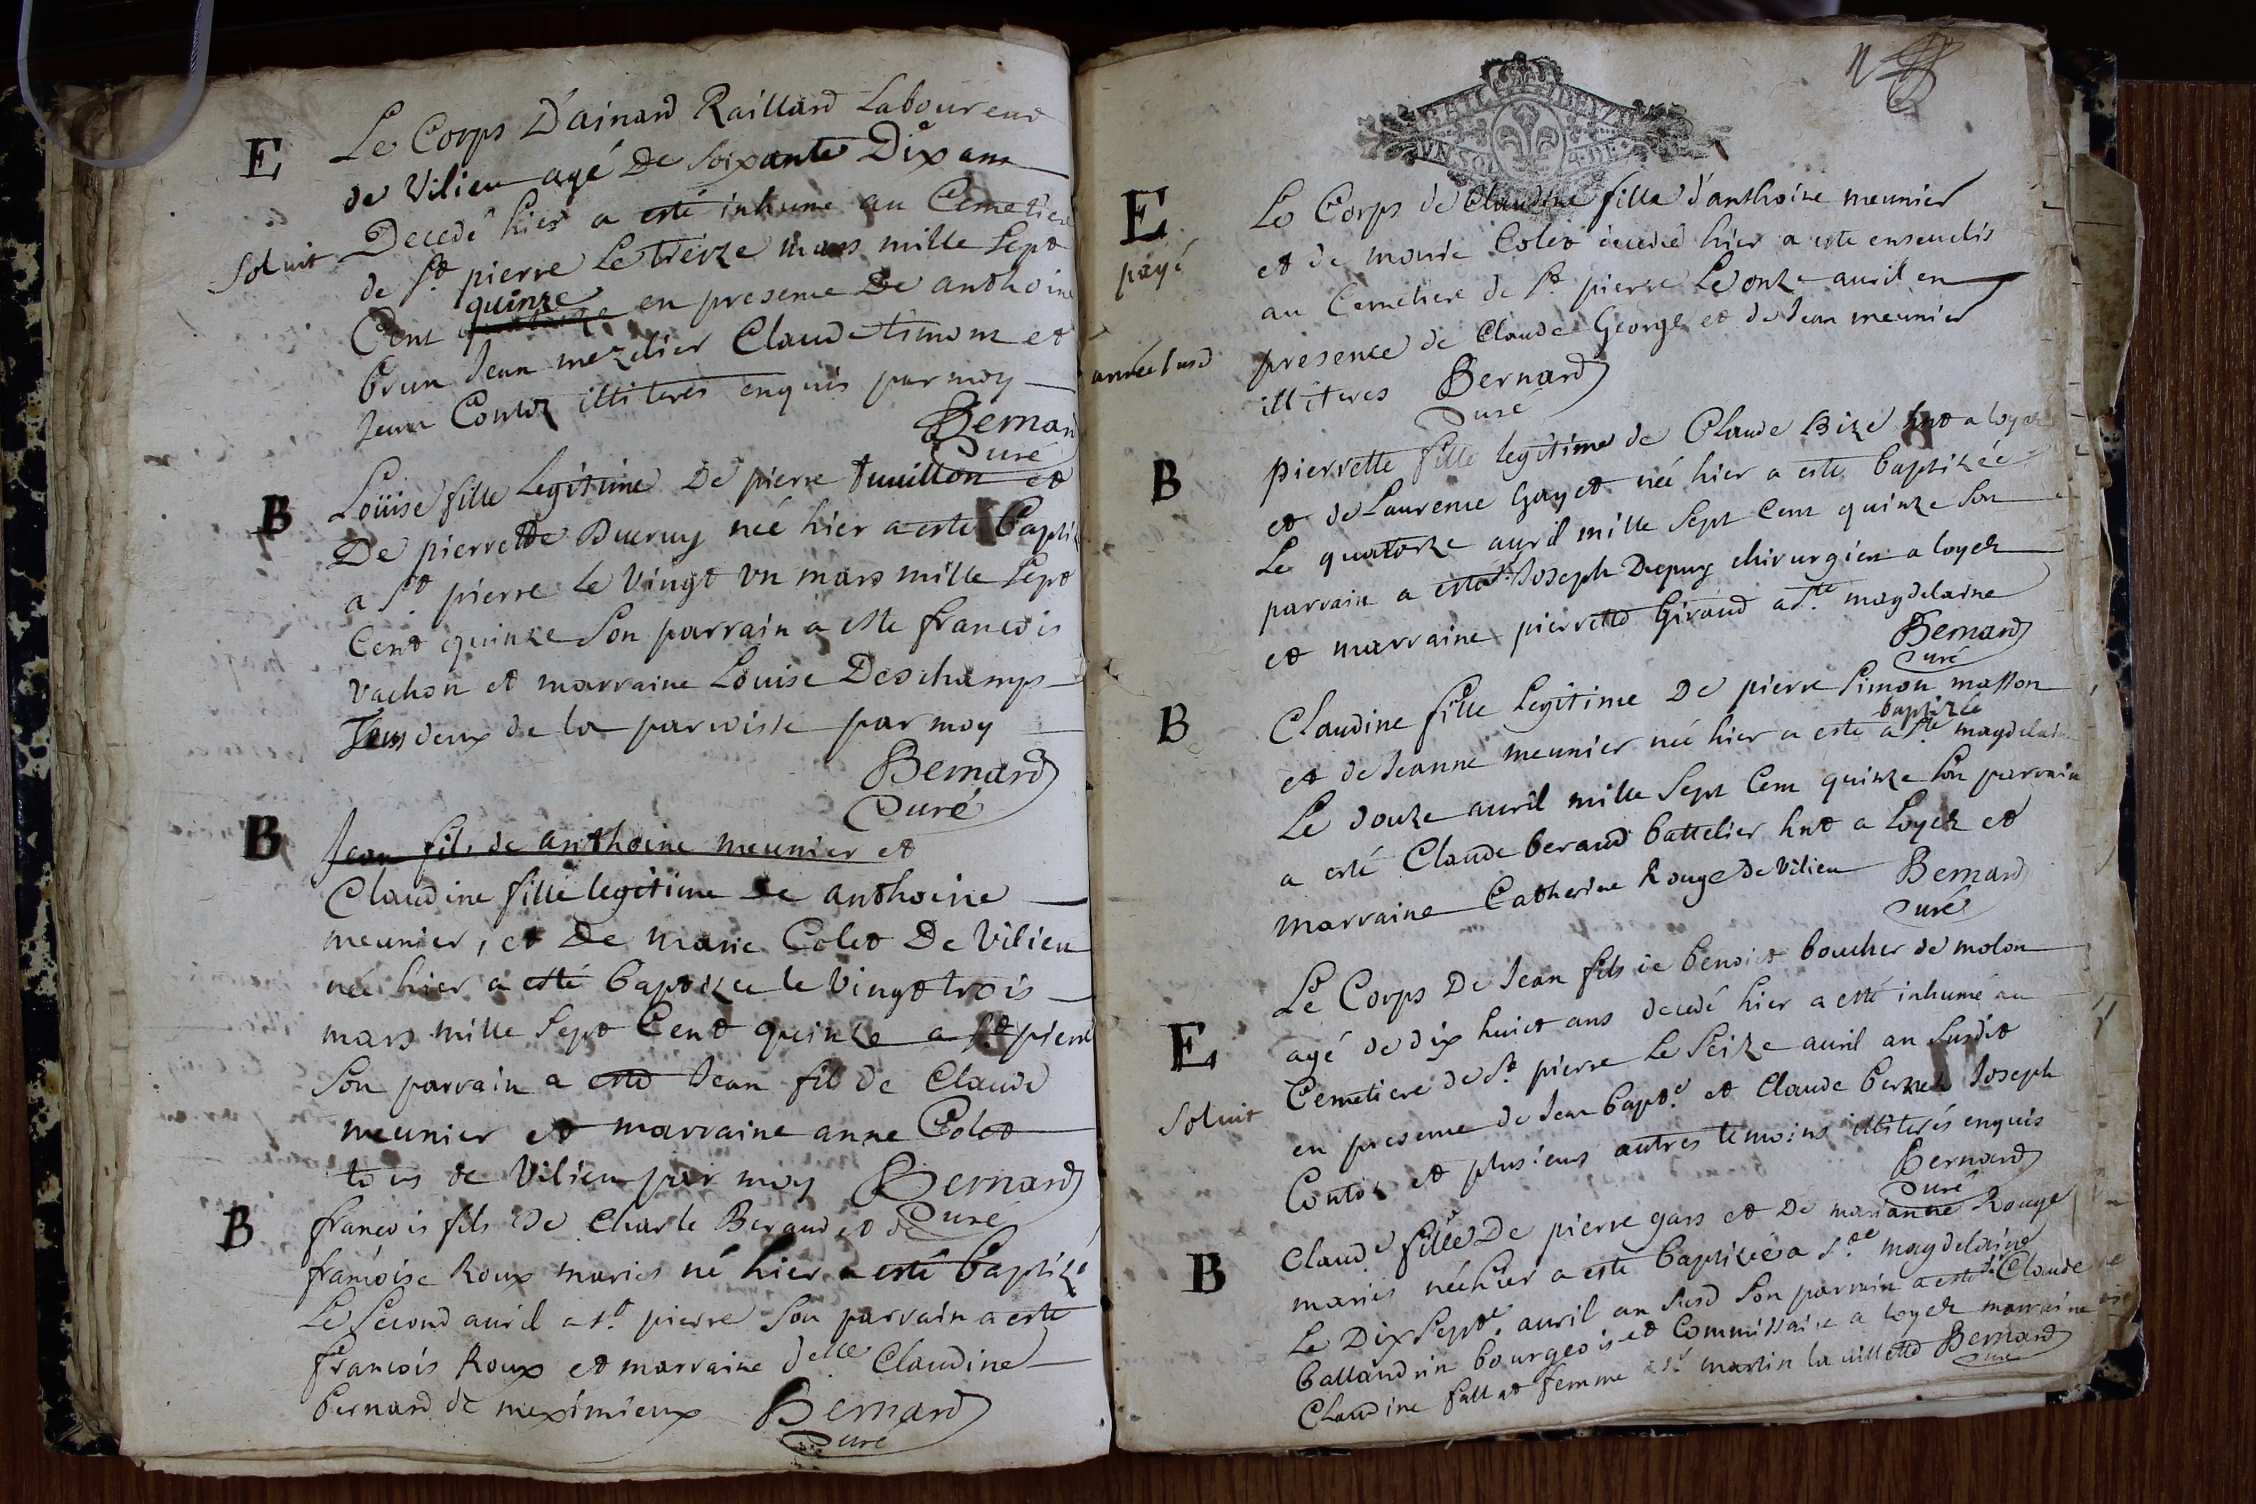 E
Le Corps D'ainard Raillard Laboureur
de Vilieu agé De Soixante Dix ans
Decedé hier a esté inhumé au Cemetiere
Soluit
de St. pierre Le treize mars mille Sept
quinze
Cent en presence De anthoine
brun Jean mezelier Claude timon et
Jean Contoz illiterés enquis par moy
Bernard
Curé
B
Loüise fille Legitime De pierre et
De pierrette Ducruy née hier a esté Bapti
a St. pierre le Vingt vn mars mille Sept
Cent quinze Son parrain a esté francois
Vachon et marraine Louise Deschamps
Tous deux de la paroisse par moy
Bernard
Curé
B
Jean fils de anthoine meunier et
Claudine fille legitime de anthoine
meunier, et De marie Colet De Vilieu
née hier a esté baptizee le Vingt trois
mars mille Sept Cent quinze a St. pierre
Son parrain a esté Jean fils de Claude
meunier et marraine anne Colet
tous de Vilieu par moy Bernard
Curé
B
francois fils De Charle Beraud et de
francoise Roux mariés né hier a esté baptizé
Le Second auril a St. pierre Son parrain a esté
francois Roux et marraine delle Claudine
bernard de meximieux Bernard
Curé
E
Le Corps de Claudine fille d'anthoine meunier
payé
et de marie Colet decedé hier a esté enseuelis
au Cemetiere de St. pierre Le onze auril en
année susd
presence de Claude George et de Jean meunier
illiteres Bernard
Curé
B
pierrette fille legitime de Claude Bizé hnt a loyes
et de Laurence Gayet née hier a esté baptizée
Le quatorze auril mille Sept Cent quinze Son
parrain a esté Sr. Joseph Dupuy chirurgien a loyes
et marraine pierrette Giraud a Ste. magdelaine
Bernard
Curé
B
Claudine fille Legitime De pierre Simon masson
baptizée
et de Jeanne meunier née hier a esté a Ste magdelaine
Le douze auril mille Sept Cent quinze Son parrain
a esté Claude beraud battelier hnt a Loyes et
marraine Catherine Rouge de Vilieu Bernard
Curé
Le Corps De Jean fils de benoict boucher de molon
E
agé de dix huict ans decedé hier a esté inhumé au
Cemetiere de St. pierre Le Seize auril an Susdit
Soluit
en presence de Jean bapte. et Claude Joseph
Contoz et plusieurs autres temoins illiterés enquis
Bernard
Curé
B
Claude. fille De pierre gars et De marianne Rouge
mariés née hier a esté baptizée a Ste magdelaine
Le Dix Septe. auril an Susd Son parrain a esté Sr Claude
ballandrin bourgeois et Commissaire a loyes marraine
Claudine fallet femme a St. martin la uillette Bernard
Curé